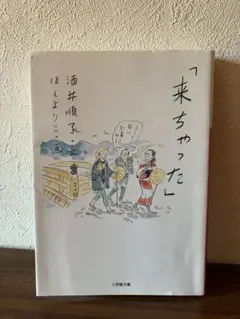 「来ちゃった」
酒井順子・文
ほしよりこ・画
小学館文庫